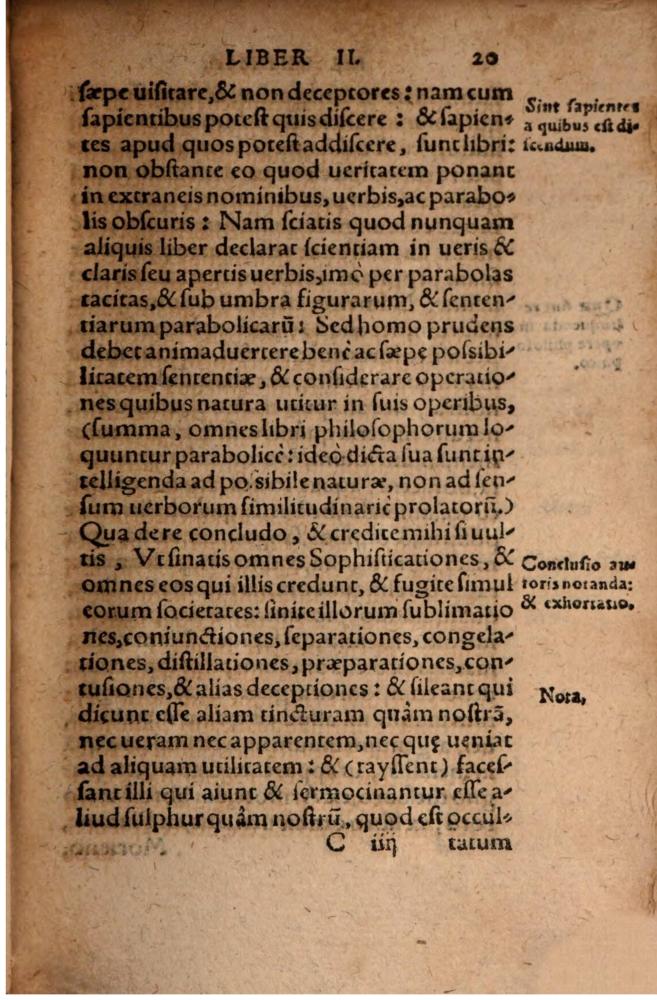 LIBER II. 20
sæpe uisitare, & non deceptores: nam cum
sapientibus potest quis discere: & sapien-
tes apud quos potest addiscere, sunt libri:
non obstante eo quod ueritatem ponant
in extraneis nominibus, uerbis, ac parabo-
lis obscuris: Nam sciatis quod nunquam
aliquis liber declarat scientiam in ueris &
claris seu apertis uerbis, imò per parabolas
tacitas, & sub umbra figurarum, & senten-
tiarum parabolicarũ: Sed homo prudens
debet animaduertere benè ac sæpę possibi-
litatem sententiæ, & considerare operatio-
nes quibus natura utitur in suis operibus,
(summa, omnes libri philosophorum lo-
quuntur parabolicè: ideò dicta sua sunt in-
telligenda ad possibile naturæ, non ad sen-
sum uerborum similitudinariè prolatorũ.)
Qua de re concludo, & credite mihi si uul-
tis, Vt sinatis omnes Sophisticationes, &
omnes eos qui illis credunt, & fugite simul
eorum societates: sinite illorum sublimatio
nes, coniunctiones, separationes, congela-
tiones, distillationes, præparationes, con-
tusiones, & alias deceptiones: & sileant qui
dicunt esse aliam tincturam quàm nostrã,
nec ueram nec apparentem, nec quę ueniat
ad aliquam utilitatem: & (tayssent) faces-
sant illi qui aiunt & sermocinantur esse a-
liud sulphur quâm nostrũ, quod est occul-
C iiij tatum
Sint sapientes
a quibus est di-
scendum.
Conclusio au-
toris notanda:
& exhortatio.
Nota,